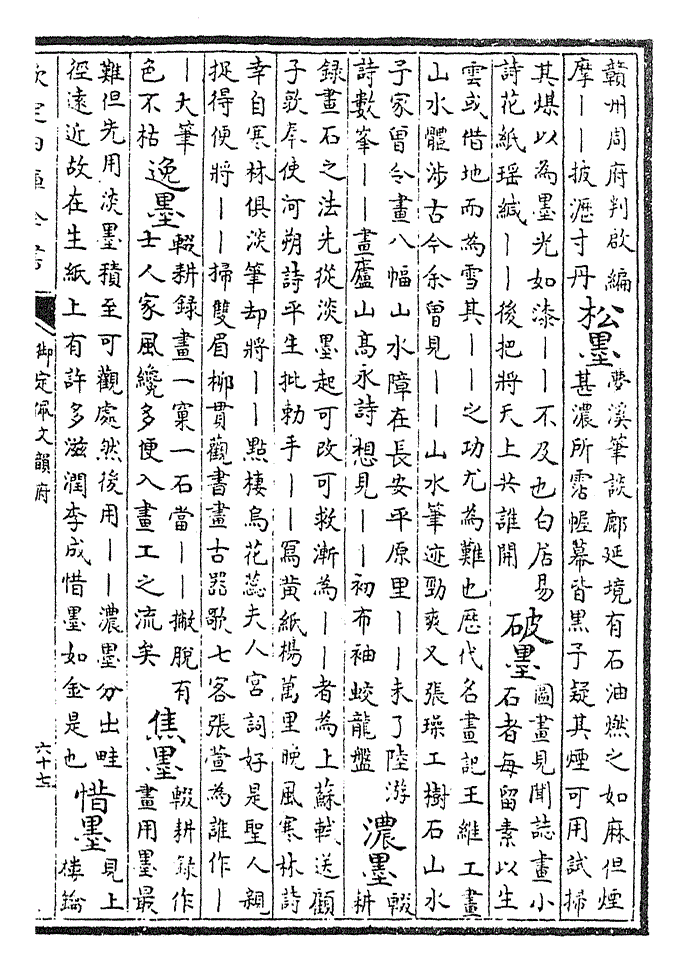 贛州周府判啟編
摩——披瀝寸丹
松墨
夢溪筆談鄜延境有石油燃之如麻但煙
甚濃所霑幄幕皆黑予疑其煙可用試掃
其煤以為墨光如漆——不及也白居易
詩花紙瑶緘——後把將天上共誰開
破墨
圖畫見聞誌畫小
石者每留素以生
雲或借地而為雪其——之功尤為難也歴代名畫記王維工畫
山水體涉古今余曾見——山水筆迹勁爽又張璪工樹石山水
予家曾令畫八幅山水障在長安平原里——未了陸游
詩數峯——畫廬山髙永詩想見——初布袖蛟龍盤
濃墨
輟
耕
録畫石之法先從淡墨起可改可救漸為——者為上蘇軾送顧
子敦奉使河朔詩平生批勅手——冩黄紙楊萬里晚風寒林詩
幸自寒林俱淡筆却將——點棲烏花蕊夫人宮詞好是聖人親
捉得便將——掃雙眉柳貫觀書畫古器歌七客張萱為誰作—
—大筆
色不枯
逸墨
輟耕録畫一窠一石當——撇脱有
士人家風纔多便入畫工之流矣
焦墨
輟耕録作
畫用墨最
難但先用淡墨積至可觀處然後用——濃墨分出畦
徑遠近故在生紙上有許多滋潤李成惜墨如金是也
惜墨
見上
樓鑰
欽定四庫全書
御定佩文韻府
六十七